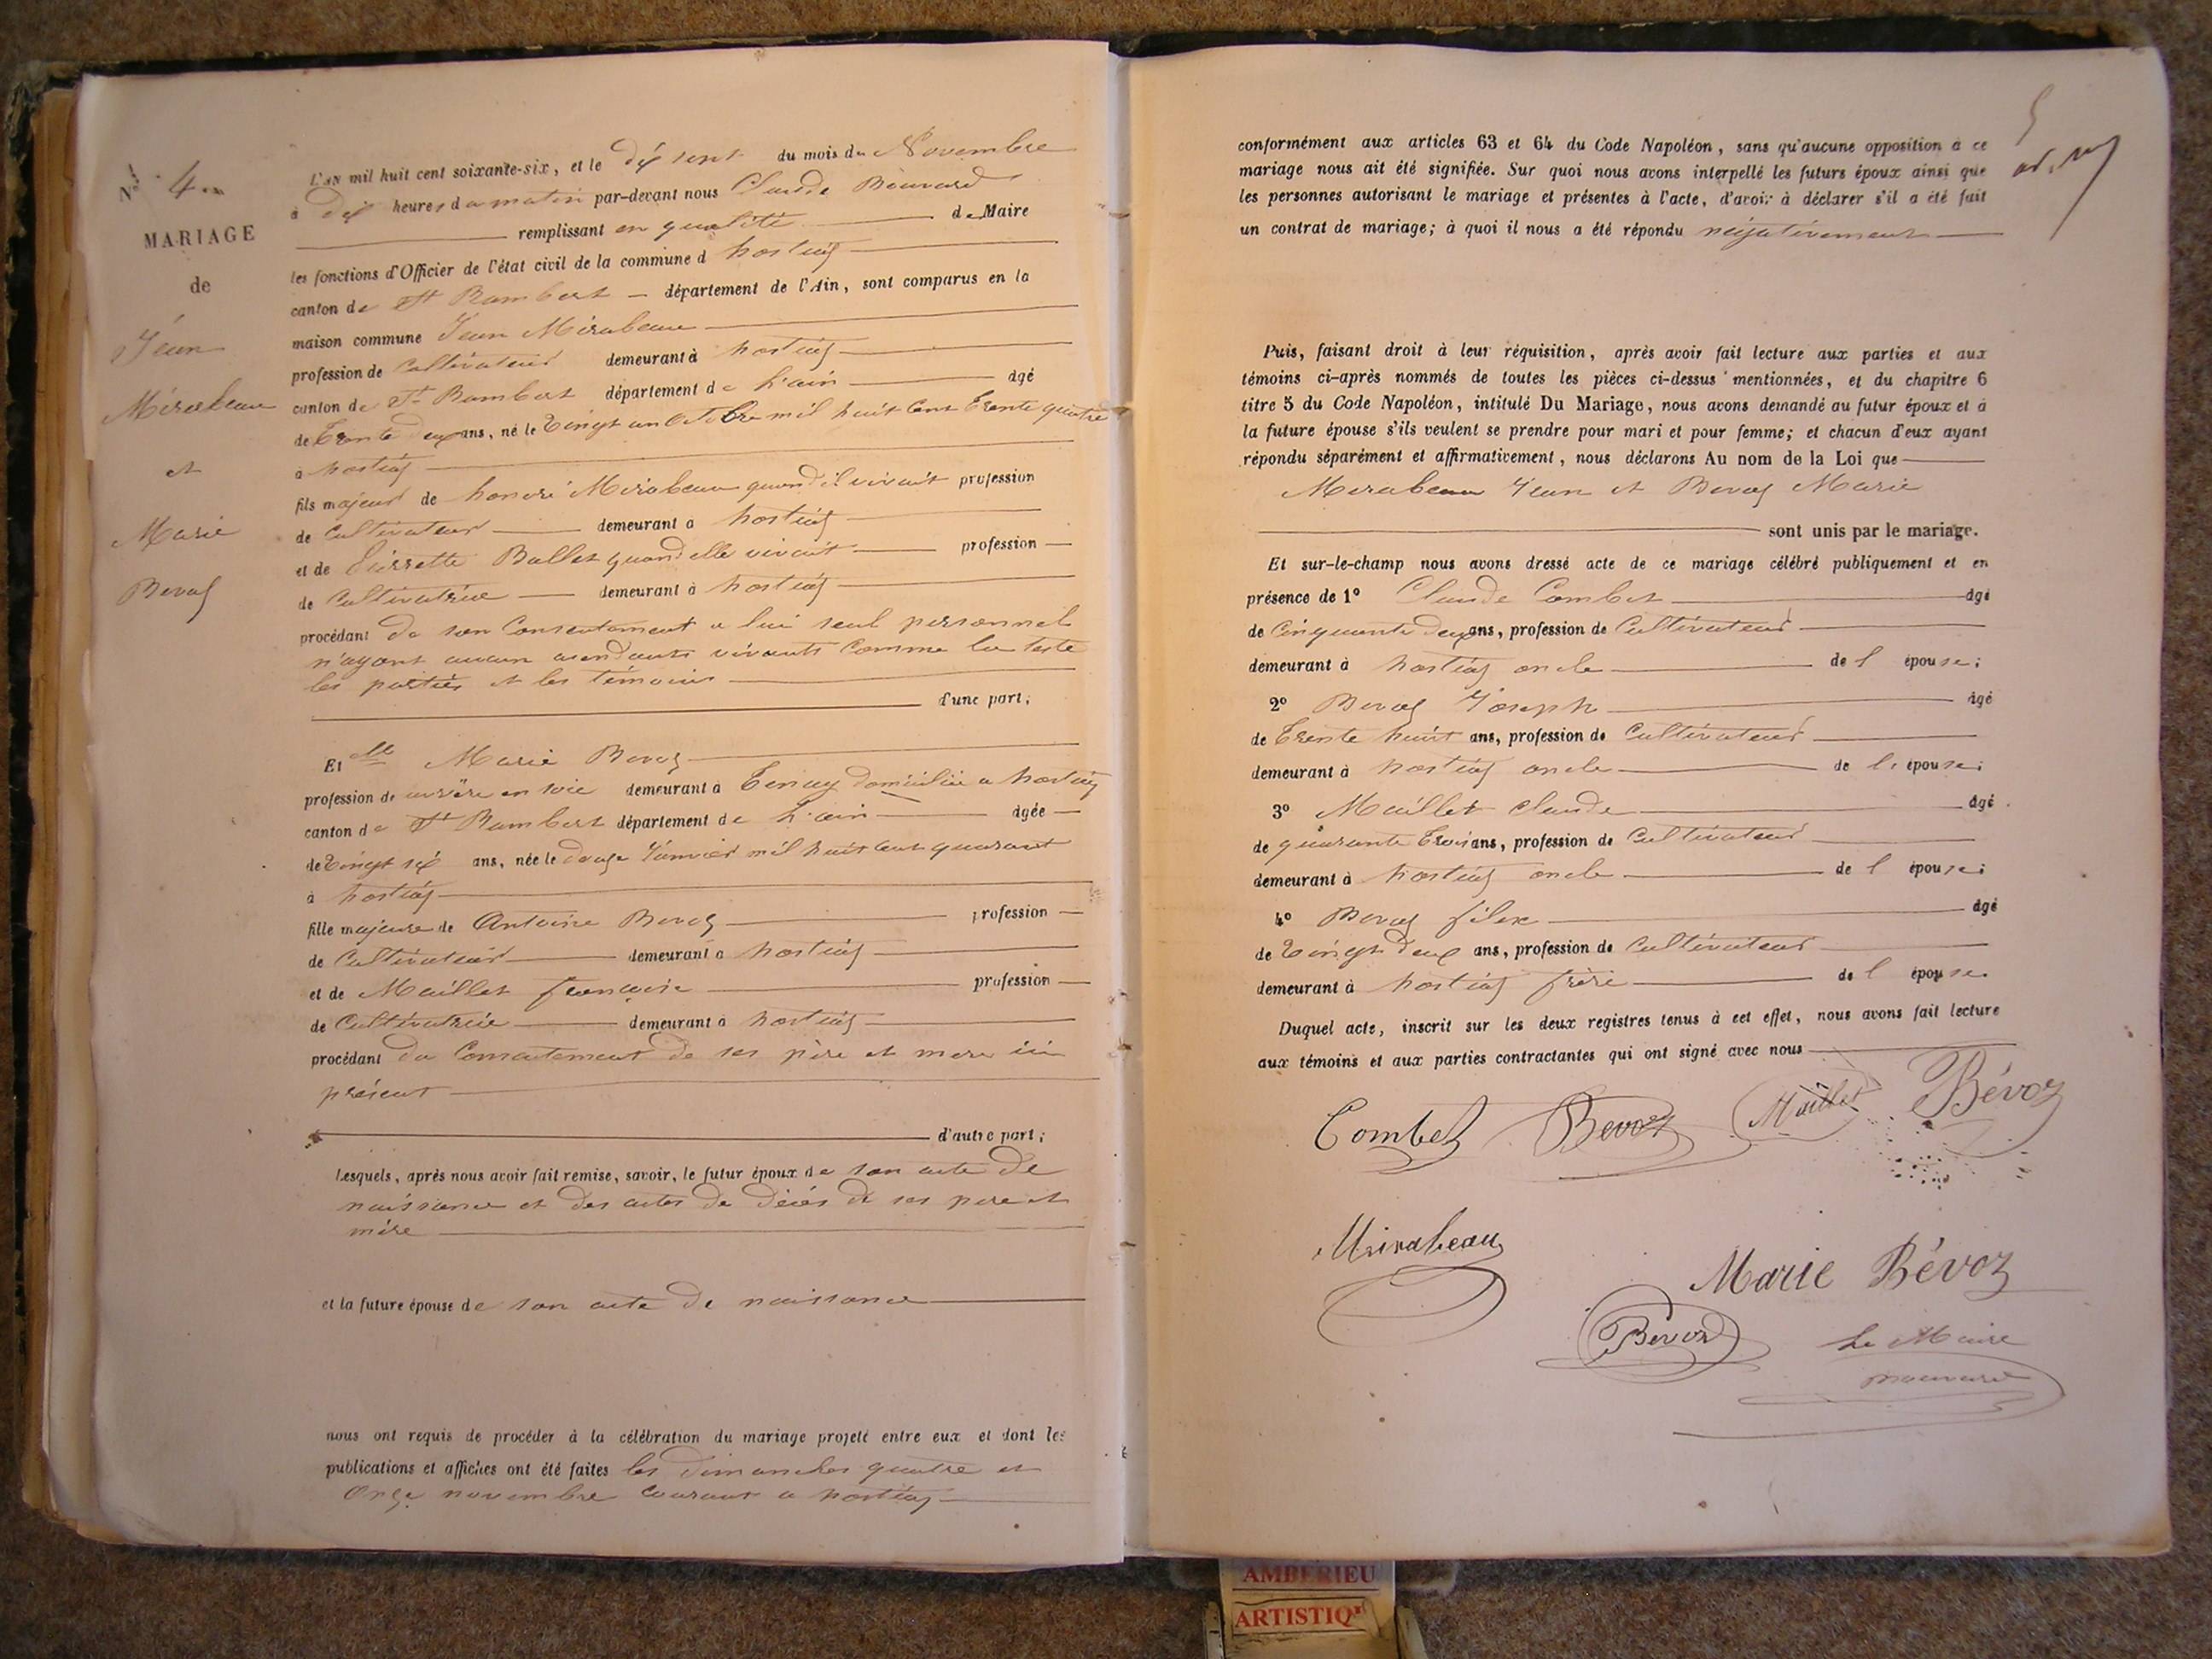 N° 4
MARIAGE
de
Jean
Mirabeau
et
Marie
Bevoz
L'AN mil huit cent soixante-six, et le dix sept du mois de Novembre
à Dix heures du matin par-devant nous Claude Bouvard
remplissant en qualité de Maire
les fonctions d'Officier de l'état civil de la commune d hostiaz
canton de St Rambert département de l'Ain, sont comparus en la
maison commune Jean Mirabeau
profession de Cultivateur demeurant à hostiaz
canton de St Rambert département de L'ain âgé
de Trente deux ans, né le Vingt un Octobre mil huit Cent Trente quatre
à hostiaz
fils majeur de honoré Mirabeau quand il vivait profession
de Cultivateur demeurant à hostiaz
et de Pierrette Ballet quand elle vivait profession
de Cultivatrice demeurant à hostiaz
procédant de son Consentement a lui seul personnel
n'ayant aucun asendants vivants Comme la teste
les parties et les témoins
d'une part;
Et Elle Marie Bevoz
profession de ouvrière en soie demeurant à Tenay domiciliée a hostiaz
canton de St Rambert département de L'ain âgée
de Vingt six ans, née le douze Janvier mil huit Cent quarant
à hostiaz
fille majeure de Antoine Bevoz profession
de Cultivateur demeurant à hostiaz
et de Maillet françoise profession
de Cultivatrice demeurant à hostiaz
procédant du Consentement de ses père et mere ici
présent
d'autre part;
Lesquels, après nous avoir fait remise, savoir, le futur époux de son acte de
naissance et des actes de décés de ses pere et
mére
et la future épouse de son acte de naissance
nous ont requis de procéder à la célébration du mariage projeté entre eux et dont les
publications et affiches ont été faites les dimanches quatre et
Onze novembre Courant a hostiaz
conformément aux articles 63 et 64 du Code Napoléon, sans qu'aucune opposition à ce
mariage nous ait été signifiée. Sur quoi nous avons interpellé les futurs époux ainsi que
les personnes autorisant le mariage et présentes à l'acte, d'avoir à déclarer s'il a été fait
un contrat de mariage; à quoi il nous a été répondu négativement
Puis, faisant droit à leur réquisition, après avoir fait lecture aux parties et aux
témoins ci-après nommés de toutes les pièces ci-dessus mentionnées, et du chapitre 6
titre 5 du Code Napoléon, intitulé Du Mariage, nous avons demandé au futur époux et à
la future épouse s'ils veulent se prendre pour mari et pour femme; et chacun d'eux ayant
répondu séparément et affirmativement, nous déclarons Au nom de la Loi que
Mirabeau Jean et Bevoz Marie
sont unis par le mariage.
Et sur-le-champ nous avons dressé acte de ce mariage célébré publiquement et en
présence de 1° Claude Combet âgé
de Cinquante deux ans, profession de Cultivateur
demeurant à hostiaz oncle de l épouse;
2° Bevoz Joseph âgé
de Trente huit ans, profession de Cultivateur
demeurant à hostiaz oncle de l épouse;
3° Maillet Claude âgé
de quarante Trois ans, profession de Cultivateur
demeurant à hostiaz oncle de l épouse;
4° Bevoz félix âgé
de Vingt deux ans, profession de Cultivateur
demeurant à hostiaz frère de l épouse
Duquel acte, inscrit sur les deux registres tenus à cet effet, nous avons fait lecture
aux témoins et aux parties contractantes qui ont signé avec nous
Combet Bevoz Maillet Bévoz
Mirabeau
Marie Bévoz
Bevoz
Le Maire
Bouvard
AMBERIEU
ARTISTIQ